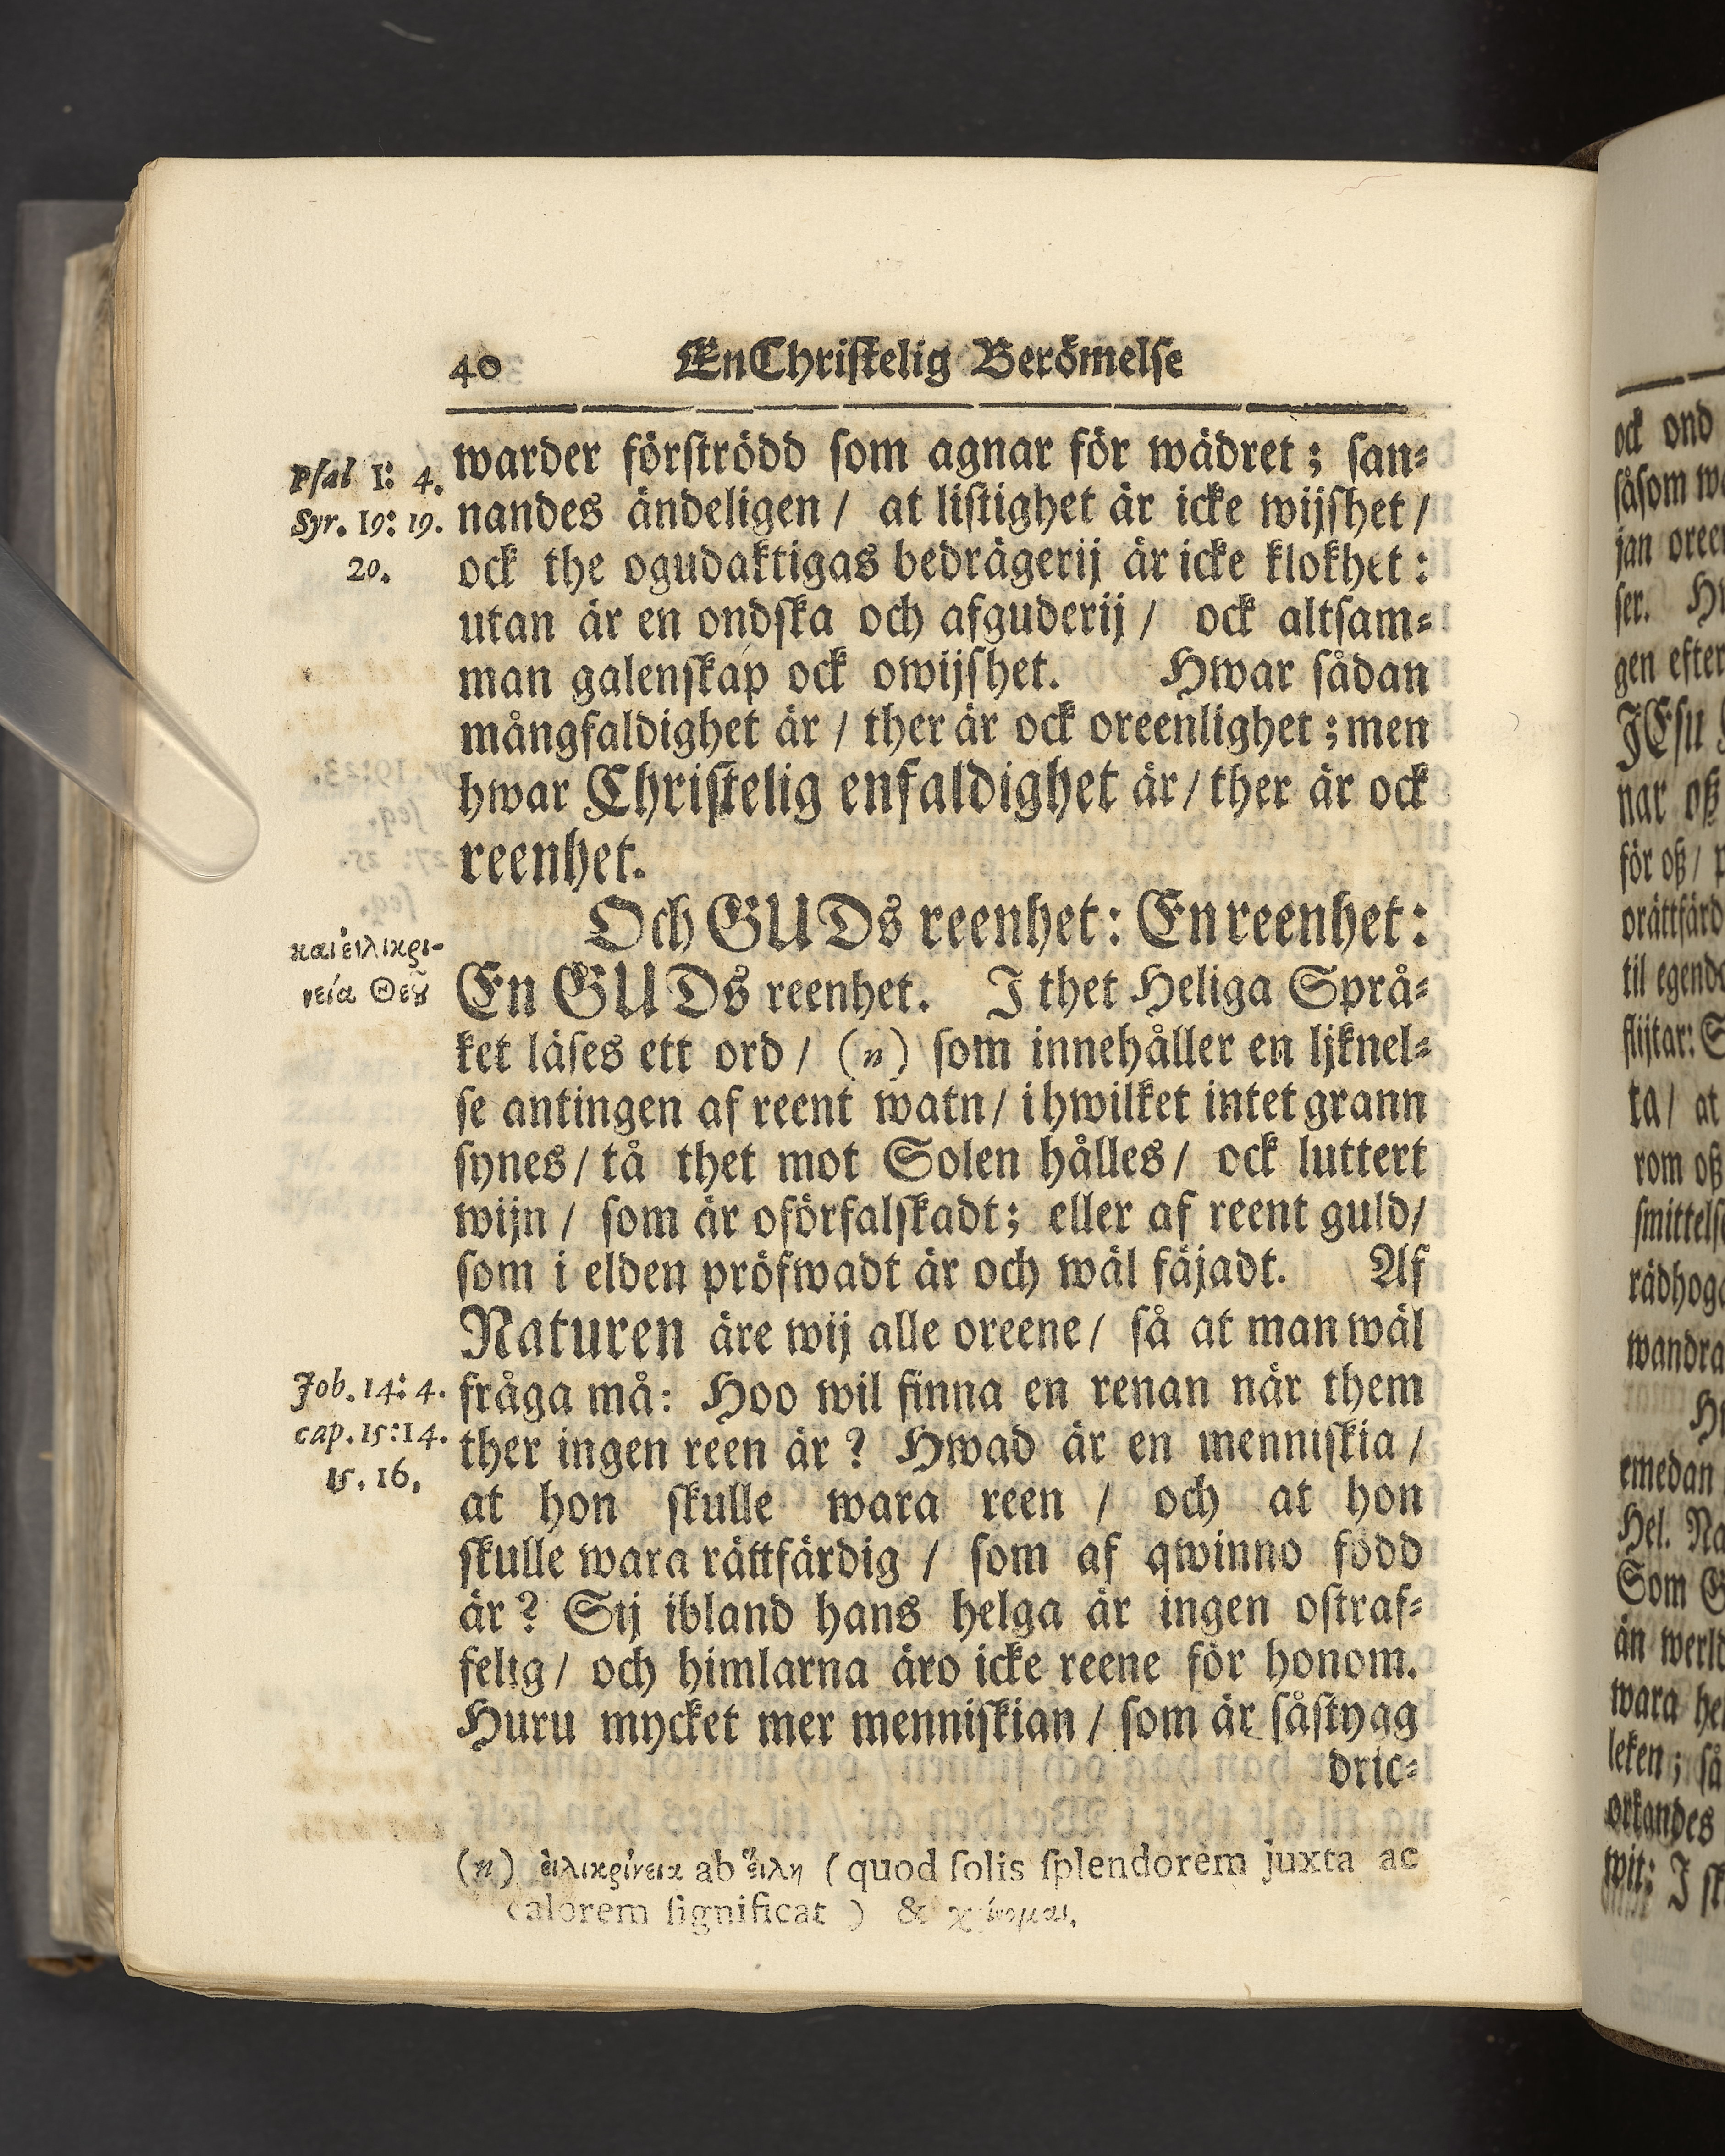 40 En Christelig Berömelse
Psal 1: 4.
Syr. 19: 19.
20.
warder förströdd som agnar för wädret; san-
nandes ändeligen / at listighet är icke wijshet /
ock the ogudaktigas bedrägerij är icke klokhet:
utan är en ondska och afguderij / ock altsam-
man galenskap ock owijshet. Hwar sådan
mångfaldighet är / ther är ock oreenlighet; men
hwar Christelig enfaldighet är / ther är ock
reenhet.
Och GUDs reenhet: En reenhet:
καὶ εἰλικρι-
νεία Θεȣ͂
En GUDs reenhet. I thet Heliga Språ-
ket läses ett ord / (n) som innehåller en ljknel-
se antingen af reent watn / i hwilket intet grann
synes / tå thet mot Solen hålles / ock luttert
wijn / som är oförfalskadt; eller af reent guld /
som i elden pröfwadt är och wäl fäjadt. Af
Naturen äre wij alle oreene / så at man wäl
Job. 14: 4.
cap. 15:14.
15. 16.
fråga må: Hoo wil finna en renan när them
ther ingen reen är? Hwad är en menniskia /
at hon skulle wara reen / och at hon
skulle wara rättfärdig / som af qwinno född
är? Sij ibland hans helga är ingen ostraf-
felig / och himlarna äro icke reene för honom.
Huru mycket mer menniskian / som är så stygg
dric-
(n) εἰλικρίνεια ab εἵλη (quod solis splendorem juxta ac
calorem significat) &
ock ond
såsom
jan
ser.
gen efter
JEsu
nar oß
för oß /
til
flijtar:
ta / at
rom oß
wandra
emedan
Hel.
Som
än
wara
leken; så
orkandes
wit: I